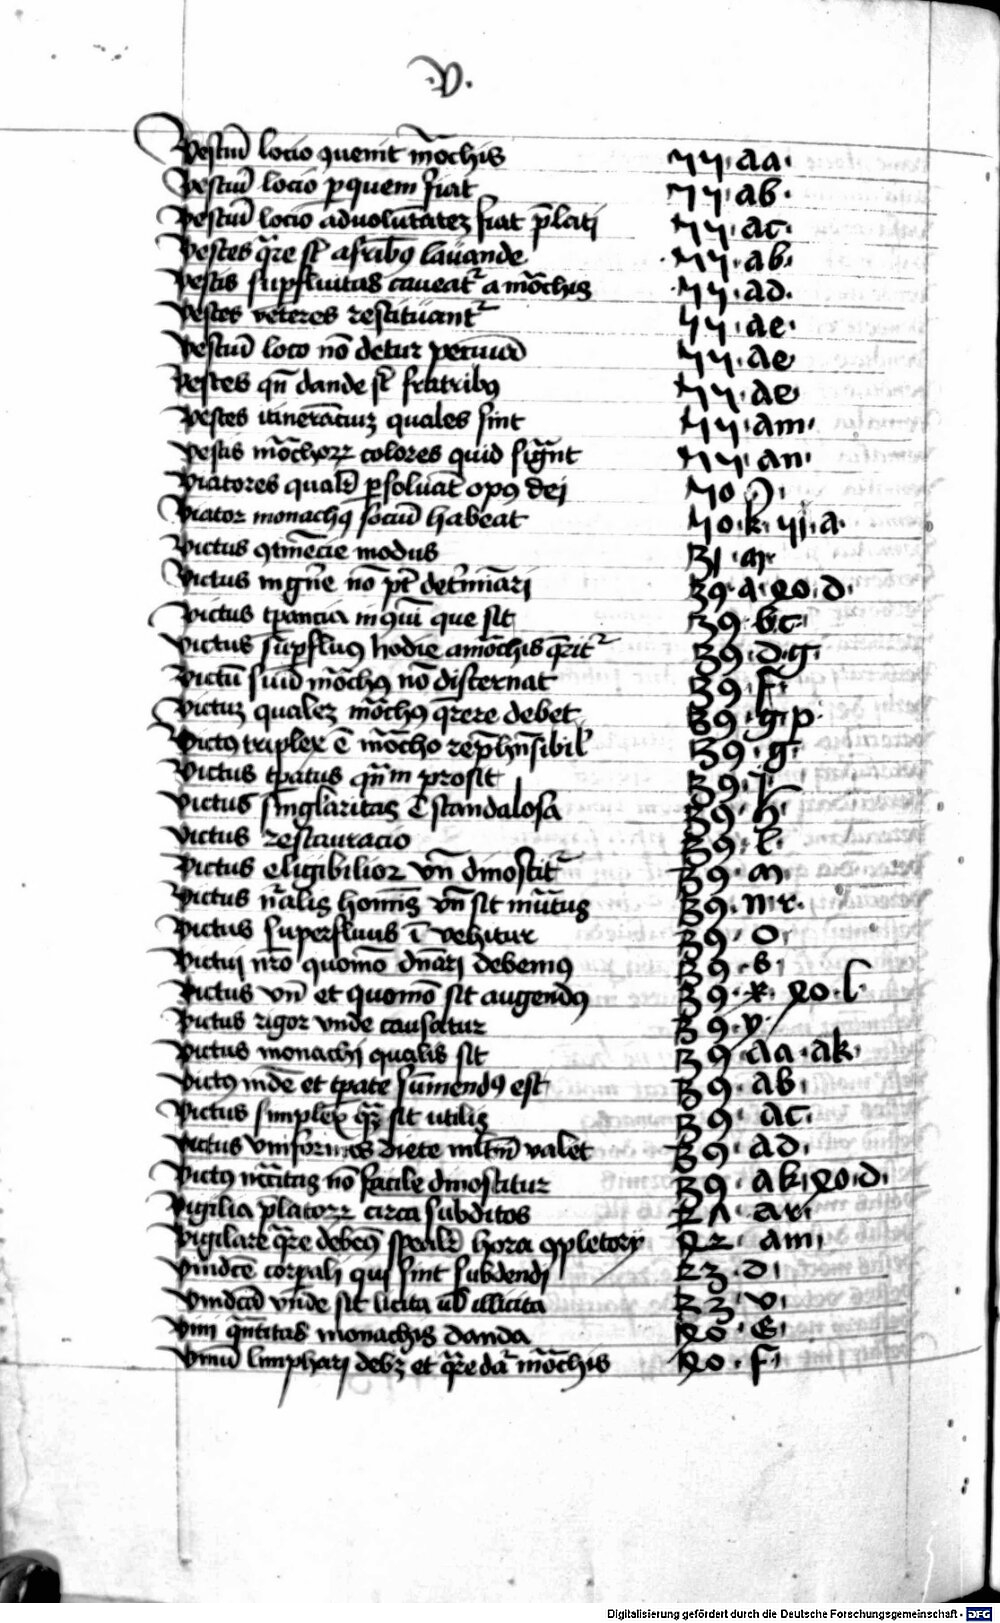 .V.
Vestiū locio quenit mōchis 55. aa.
Vestiū locio p quem fiat 55. ab.
Vestiū locio ad voluntatez fiat p̄lati 55. ac.
Vestes q̄re st̄ a frībꝰ lauande 55. ab.
Vestis supfluitas caueat a mōchis 55. ad.
Vestes veteres restituant 55. ae.
Vestiū loco nō detur pecunia 55. ae
Vestes qn̄ dande st̄ fratribꝰ 55. ae
Vestes itinerantiuz quales sint 55. am.
Vestis mōchorz colores quid sign̄t 55. an.
Viatores qualr̄ psoluāt opꝰ dei 50
Viator monachꝰ sociū habeat 50. k. 51. a.
Victus modus 31.
Victus in gn̄e nō pt̄ det̄minari 39. a. 40. d.
Victus tpancia in que sit 39. b c.
Victus supfluꝰ hodie a mōchis q̄rit 39. d. g.
Victū suū mōchꝰ nō discernat 39. f.
Victuz qualez mōchꝰ q̄rere debet 39. g. p.
Victꝰ triplex ē mōcho rep̄hn̄sibil 39. g.
Victus tpatus prosit 39.
Victus singlaritas ē scandalosa 39. h.
Victus restauracio 39. l.
Victus eligibilior vn̄ dinoscit 39. m.
Victus n̄alis homīs vn̄ sit 39. n. r.
Victus superfluus 39. o.
Victui nr̄o quomō debemꝰ 39. s.
Victus vn̄ et quomō sit augendꝰ 39. x. 40. l.
Victus rigor vnde causatur 39. v.
Victus monachi qualis sit 39. aa. ak.
Victꝰ inde et tpate sūmendꝰ est 39. ab.
Victus simplex sit utilis 39. ac.
Victus vniformes diete valet 39. ad.
Victꝰ nō facile dinoscitur 39. ak. 40. d.
Vigilia p̄latorz circa subditos 21. ar.
Vigilare q̄re debeꝰ hora ꝯpletorij 42. am.
corpali qui sint subdendi 23. d.
Vindcā vnde sit licita vl̄ illicita 33. v.
Vini q̄ntitas monachis danda 40. e.
Vinū limphari debz et q̄re da mōchis 40. f.
Digitalisierung gefördert durch die Deutsche Forschungsgemeinschaft - DFG